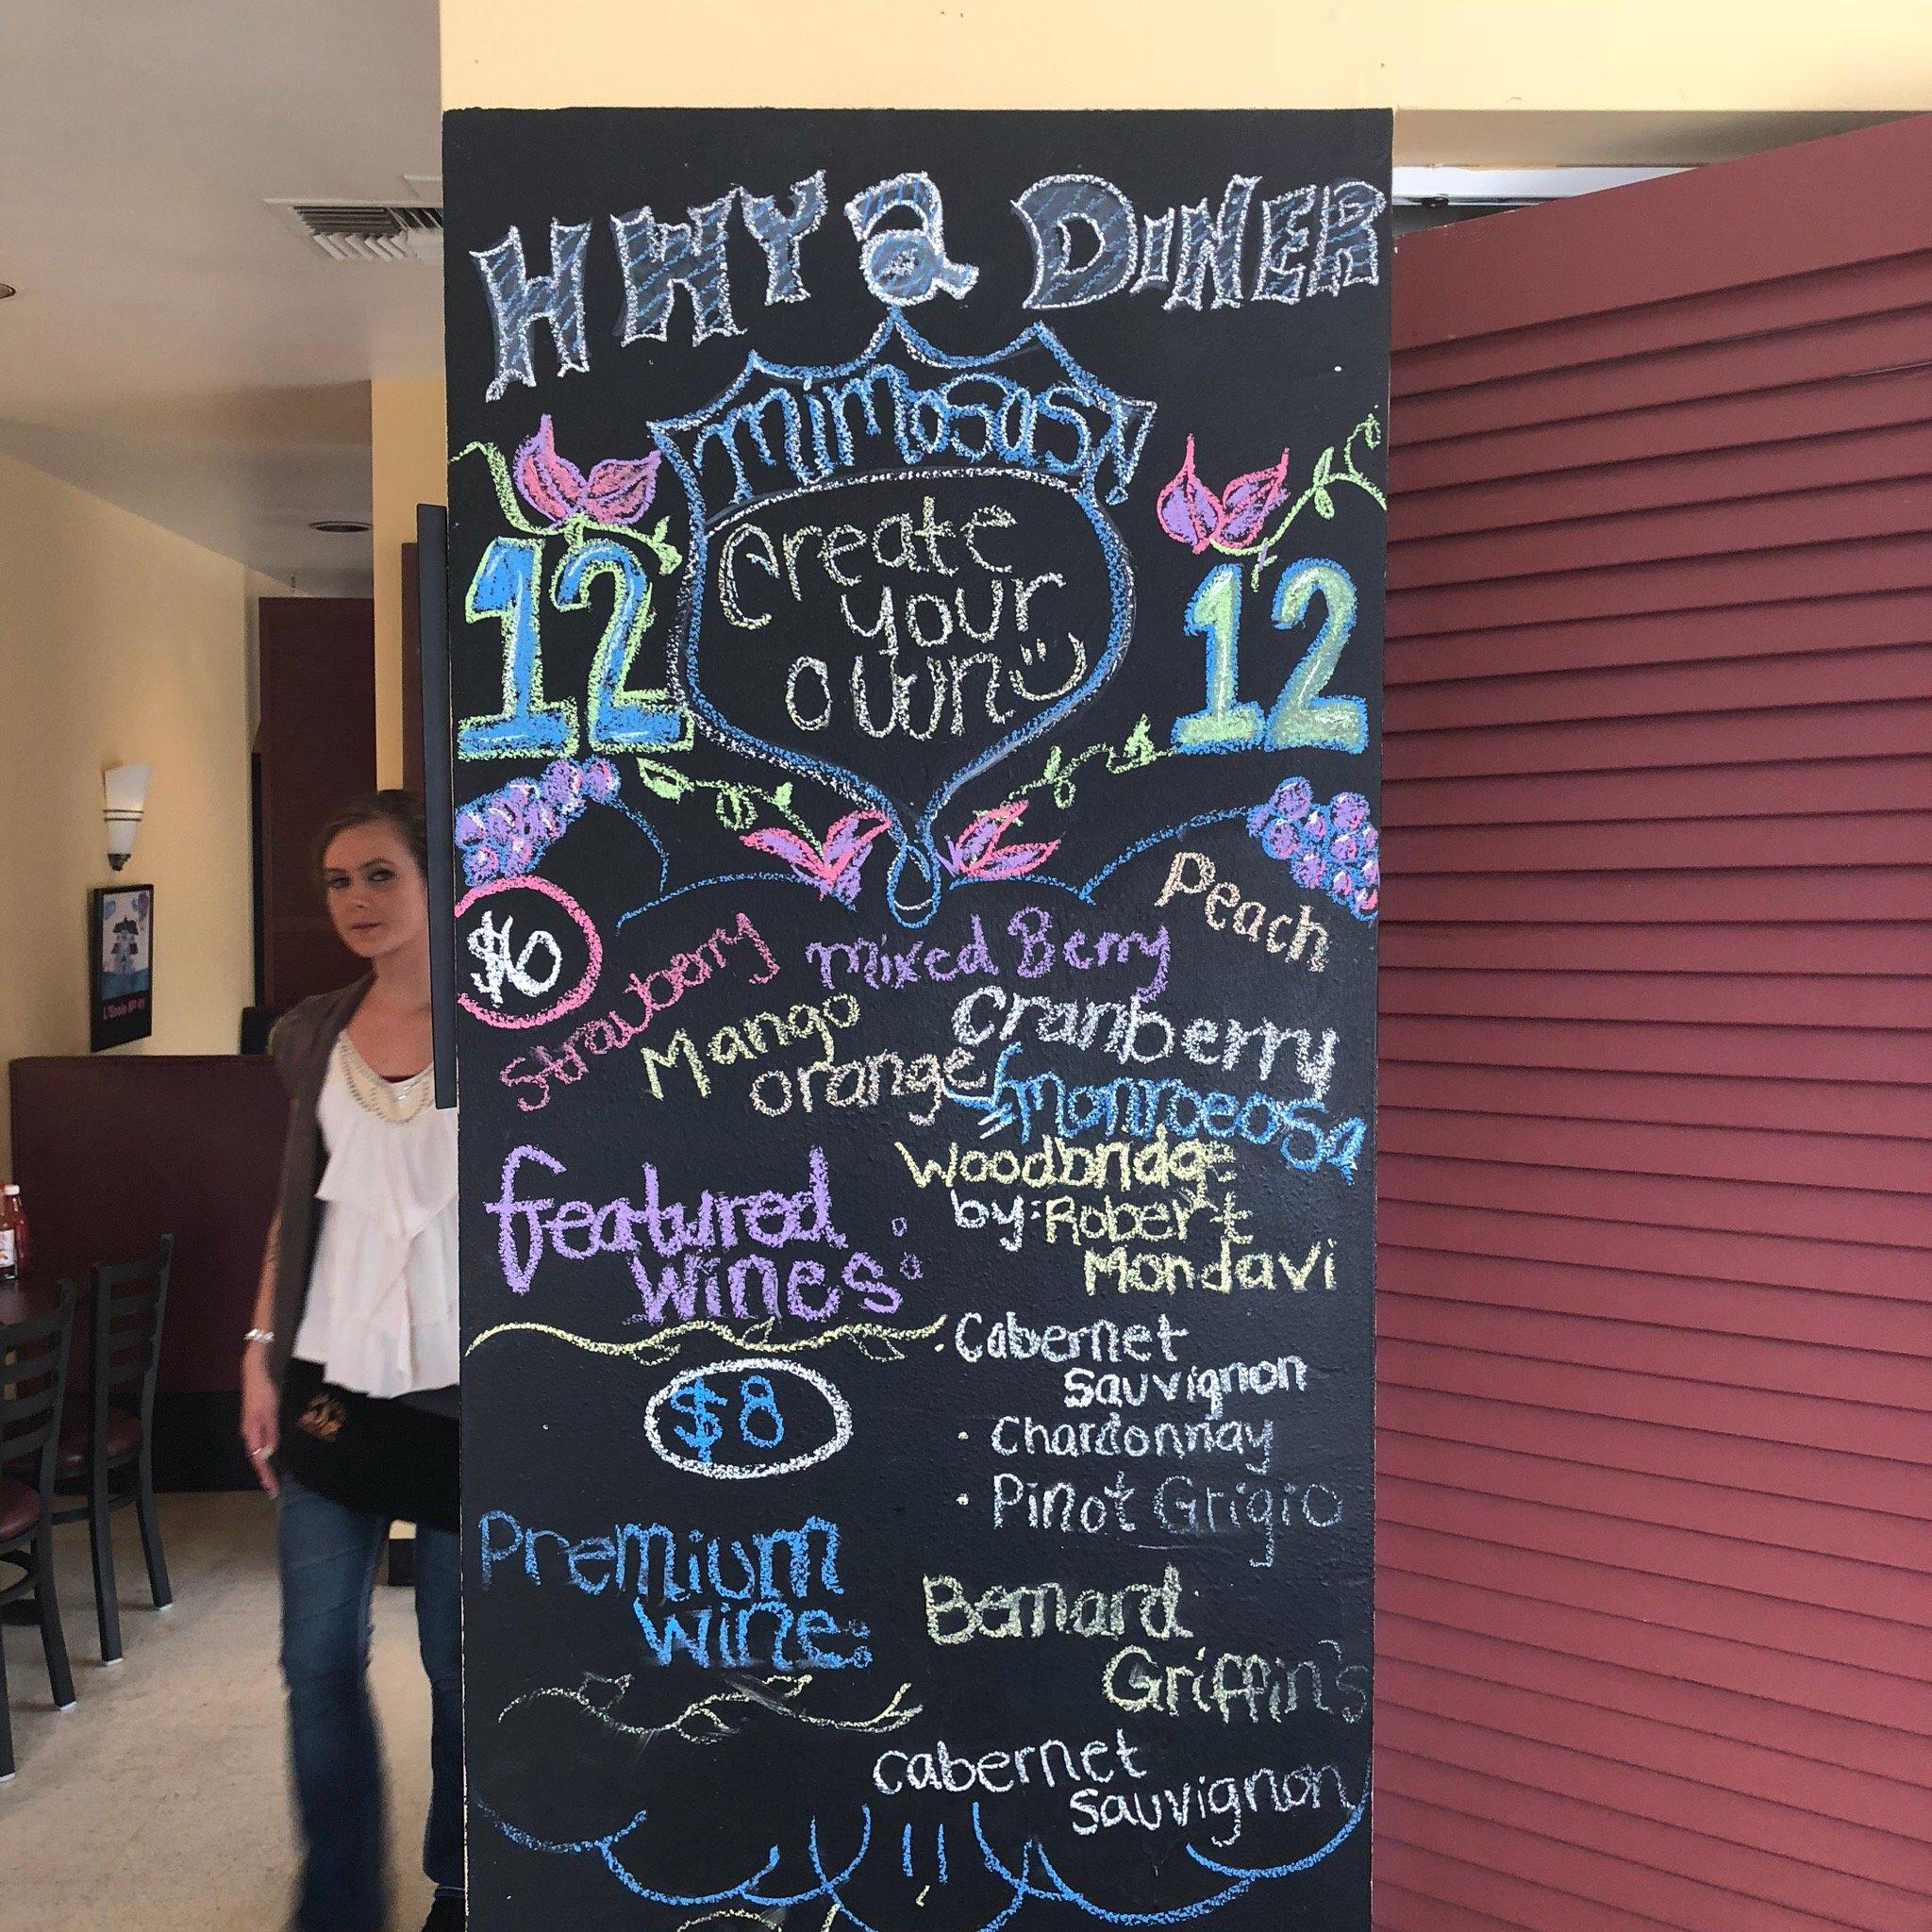 HWY a DINER
mimosas!
12 create 12
your
own
$6 Strawberry mixed Berry Peach
Mango Cranberry
orange monroeosa
featured wines:
Woodbridge
by: Robert
Mondavi
$8
· Cabernet
Sauvignon
· Chardonnay
· Pinot Grigio
Premium
wine:
Bernard
Griffin's
cabernet
sauvignon